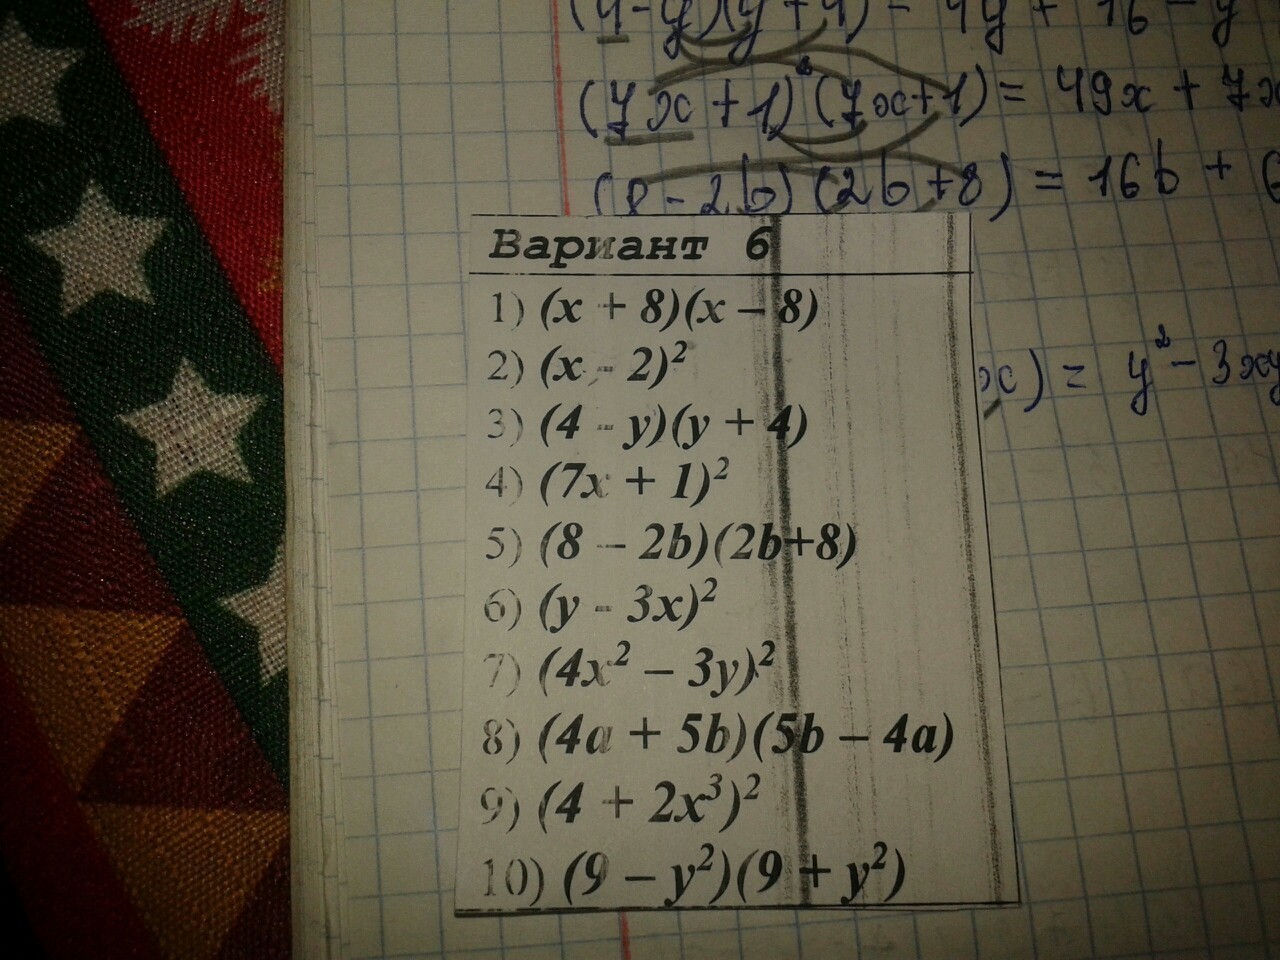 (4-y)(y+4) = 4y + 16 - y
(7x+1)²(7x+1) = 49x + 7x
(8-2b)(2b+8) = 16b + 6
x) = y² - 3xy
Вариант 6
1) (x + 8)(x – 8)
2) (x - 2)²
3) (4 - y)(y + 4)
4) (7x + 1)²
5) (8 – 2b)(2b+8)
6) (y - 3x)²
7) (4x² – 3y)²
8) (4a + 5b)(5b – 4a)
9) (4 + 2x³)²
10) (9 – y²)(9 + y²)